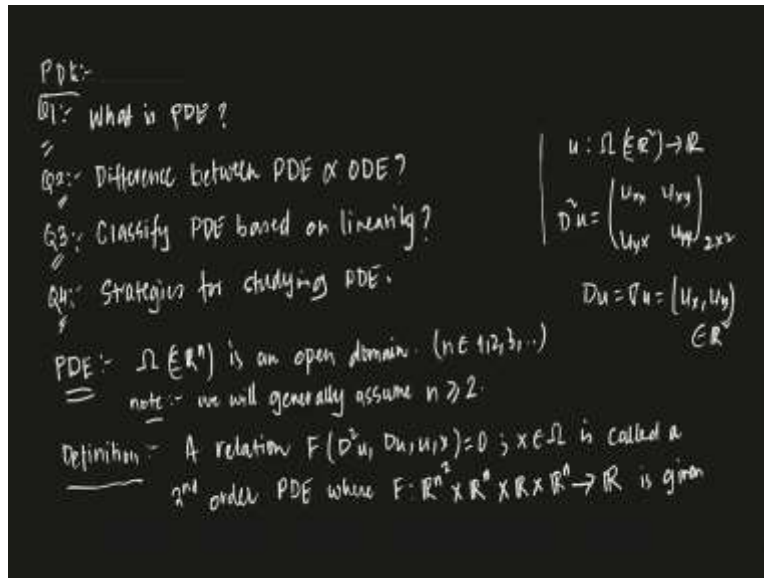 PDE:-
Q1:- What is PDE?
Q2:- Difference between PDE & ODE?
Q3:- Classify PDE based on linearity?
Q4:- Strategies for studying PDE.
u : Ω (⊆ℝ²) → ℝ
D²u = (u_xx u_xy
u_yx u_yy)_2×2
Du = ∇u = (u_x, u_y)
∈ ℝ²
PDE :- Ω (⊆ℝⁿ) is an open domain. (n ∈ 1,2,3,..)
note :- we will generally assume n ≥ 2.
Definition - A relation F(D²u, Du, u, x) = 0 ; x ∈ Ω is called a
2nd order PDE where F : ℝ^n² × ℝⁿ × ℝ × ℝⁿ → ℝ is given